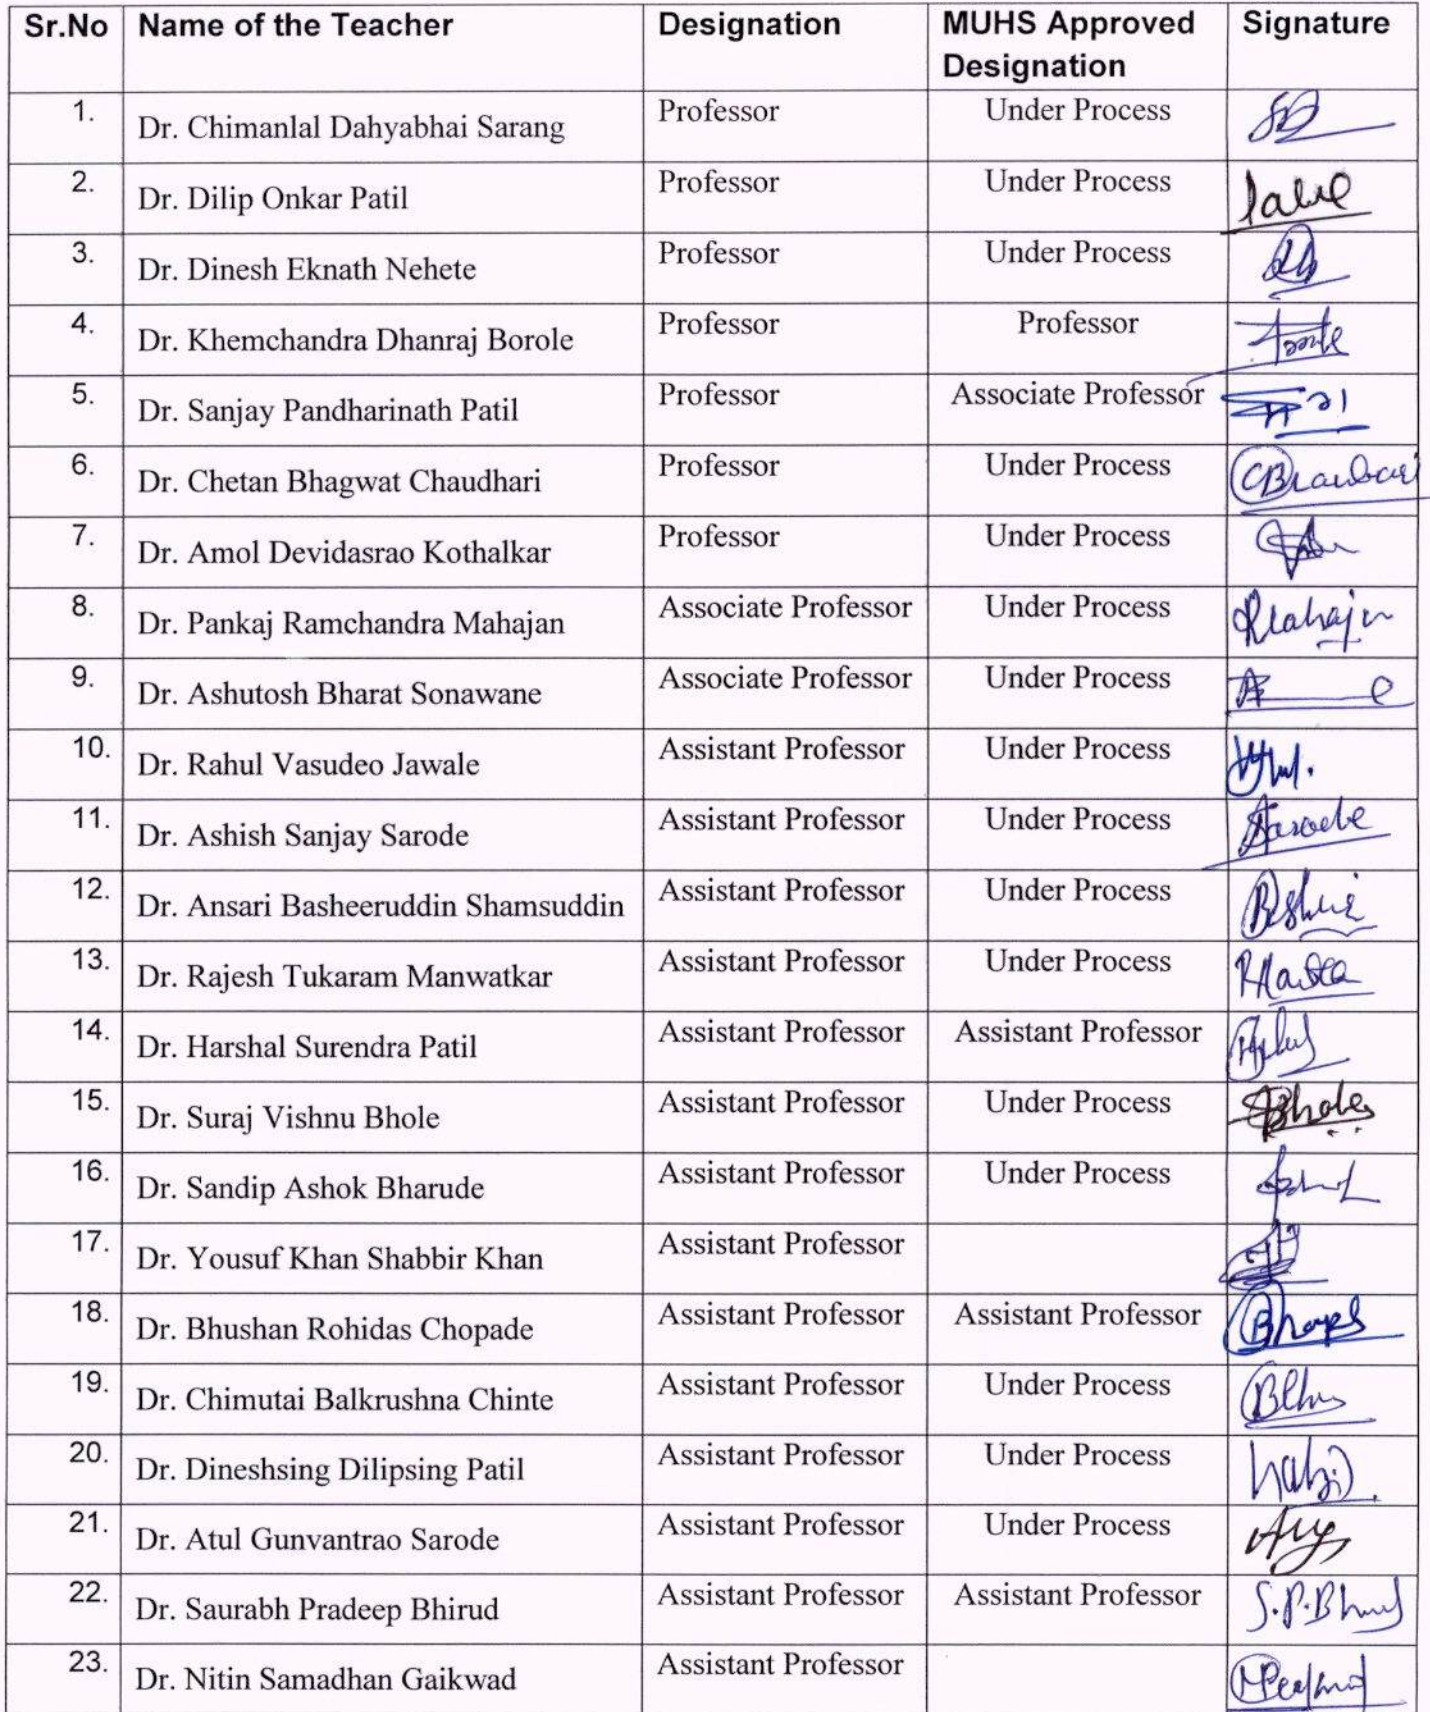 Sr.No Name of the Teacher Designation MUHS Approved Signature
Designation
1. Dr. Chimanlal Dahyabhai Sarang Professor Under Process
2. Dr. Dilip Onkar Patil Professor Under Process
3. Dr. Dinesh Eknath Nehete Professor Under Process
4. Dr. Khemchandra Dhanraj Borole Professor Professor
5. Dr. Sanjay Pandharinath Patil Professor Associate Professor
6. Dr. Chetan Bhagwat Chaudhari Professor Under Process
7. Dr. Amol Devidasrao Kothalkar Professor Under Process
8. Dr. Pankaj Ramchandra Mahajan Associate Professor Under Process
9. Dr. Ashutosh Bharat Sonawane Associate Professor Under Process
10. Dr. Rahul Vasudeo Jawale Assistant Professor Under Process
11. Dr. Ashish Sanjay Sarode Assistant Professor Under Process
12. Dr. Ansari Basheeruddin Shamsuddin Assistant Professor Under Process
13. Dr. Rajesh Tukaram Manwatkar Assistant Professor Under Process
14. Dr. Harshal Surendra Patil Assistant Professor Assistant Professor
15. Dr. Suraj Vishnu Bhole Assistant Professor Under Process
16. Dr. Sandip Ashok Bharude Assistant Professor Under Process
17. Dr. Yousuf Khan Shabbir Khan Assistant Professor
18. Dr. Bhushan Rohidas Chopade Assistant Professor Assistant Professor
19. Dr. Chimutai Balkrushna Chinte Assistant Professor Under Process
20. Dr. Dineshsing Dilipsing Patil Assistant Professor Under Process
21. Dr. Atul Gunvantrao Sarode Assistant Professor Under Process
22. Dr. Saurabh Pradeep Bhirud Assistant Professor Assistant Professor
23. Dr. Nitin Samadhan Gaikwad Assistant Professor